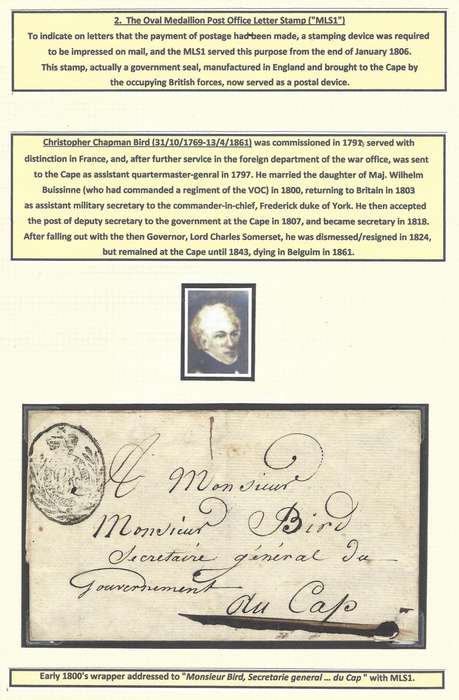 2. The Oval Medallion Post Office Letter Stamp ("MLS1")
To indicate on letters that the payment of postage had been made, a stamping device was required
to be impressed on mail, and the MLS1 served this purpose from the end of January 1806.
This stamp, actually a government seal, manufactured in England and brought to the Cape by
the occupying British forces, now served as a postal device.
Christopher Chapman Bird (31/10/1769-13/4/1861) was commissioned in 1792, served with
distinction in France, and, after further service in the foreign department of the war office, was sent
to the Cape as assistant quartermaster-genral in 1797. He married the daughter of Maj. Wilhelm
Buissinne (who had commanded a regiment of the VOC) in 1800, returning to Britain in 1803
as assistant military secretary to the commander-in-chief, Frederick duke of York. He then accepted
the post of deputy secretary to the government at the Cape in 1807, and became secretary in 1818.
After falling out with the then Governor, Lord Charles Somerset, he was dismessed/resigned in 1824,
but remained at the Cape until 1843, dying in Belguim in 1861.
A Monsieur
Monsieur Bird
Secretaire général du
Gouvernement
du Cap
Early 1800's wrapper addressed to "Monsieur Bird, Secretarie general ... du Cap" with MLS1.